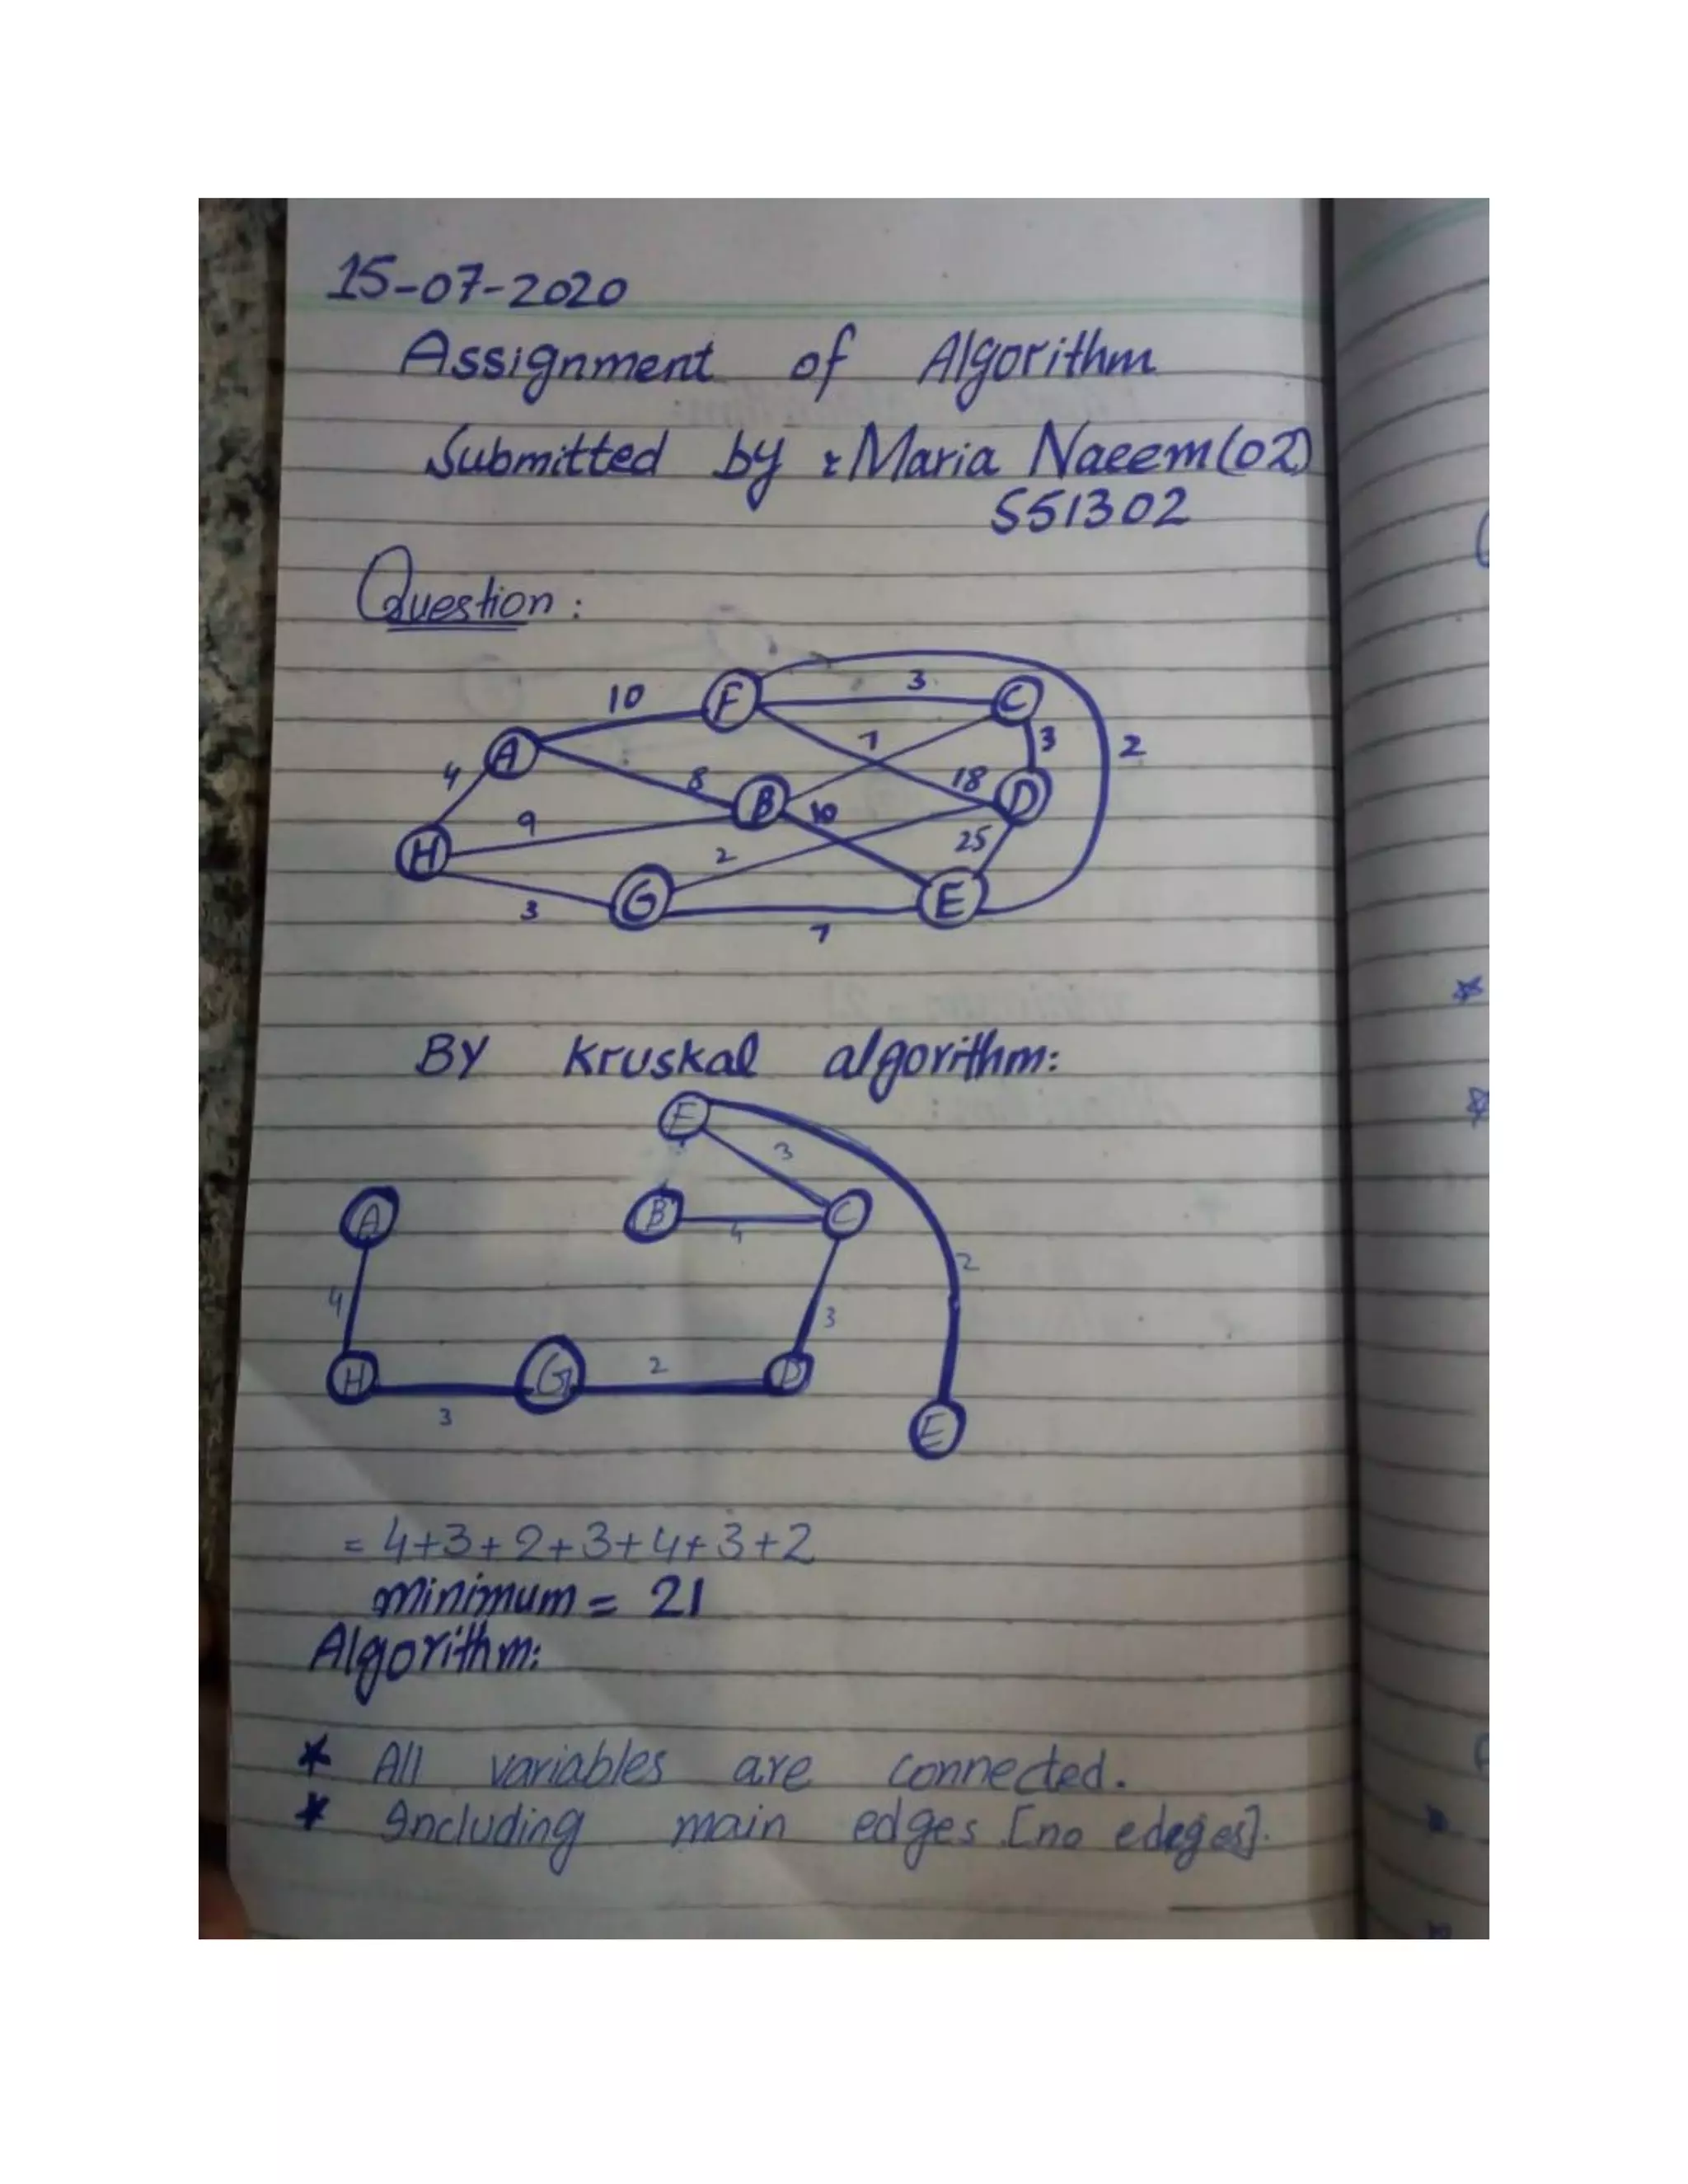 15-07-2020
Assignment of Algorithm
Submitted by : Maria Naeem (02)
S51302
Question :
10
F
3
C
A
7
3
2
4
8
B
10
18
D
9
H
2
25
3
G
E
7
By Kruskal algorithm:
F
3
A
B
C
4
2
4
3
H
G
2
D
3
E
= 4+3+2+3+4+3+2
minimum = 21
Algorithm:
* All variables are connected.
* Including main edges [no edeges].